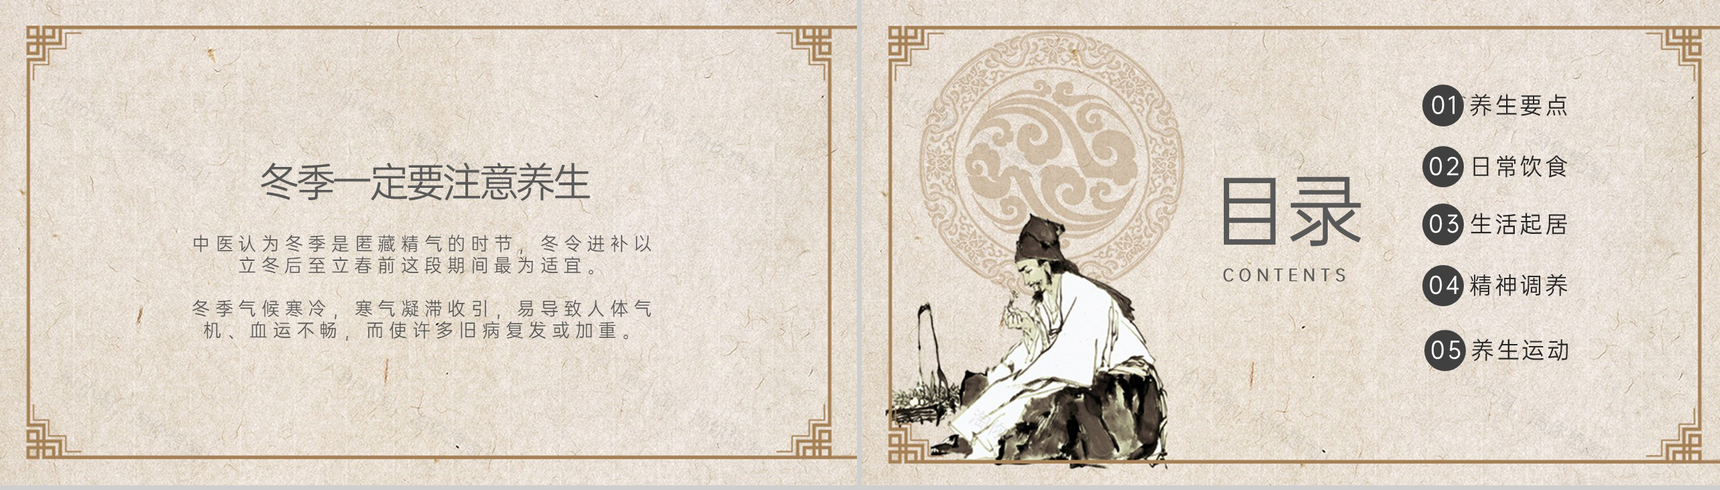 冬季一定要注意养生
中医认为冬季是匿藏精气的时节，冬令进补以
立冬后至立春前这段期间最为适宜。
冬季气候寒冷，寒气凝滞收引，易导致人体气
机、血运不畅，而使许多旧病复发或加重。
目录
CONTENTS
01 养生要点
02 日常饮食
03 生活起居
04 精神调养
05 养生运动